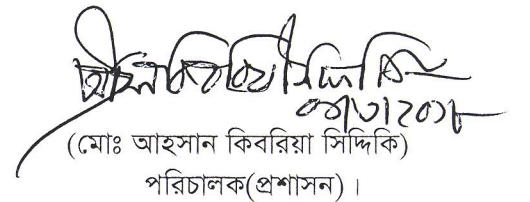 (মোঃ আহসান কিবরিয়া সিদ্দিকি)
পরিচালক(প্রশাসন)।